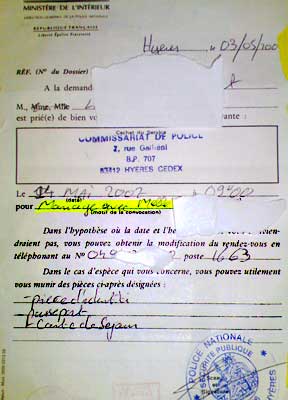 MINISTÈRE DE L'INTÉRIEUR
RÉPUBLIQUE FRANÇAISE
Liberté Égalité Fraternité
Hyères, le 03/05/200
RÉF. (N° du Dossier)
A la demand
M., Mme, Mlle
est prié(e) de bien vo
vante :
Cachet du Service
COMMISSARIAT DE POLICE
2, rue Galliéni
B.P. 707
83412 HYERES CEDEX
Le 14 MAI 2002 à 09H00
(date)
pour Mariage avec Melle
(motif de la convocation)
Dans l'hypothèse où la date et l'he
vien-
draient pas, vous pouvez obtenir la modification du rendez-vous en
téléphonant au N° 04 2 poste 1663
Dans le cas d'espèce qui vous concerne, vous pouvez utilement
vous munir des pièces ci-après désignées :
- pièce d'identité
- passeport
- Carte de Séjour
POLICE NATIONALE
SÉCURITÉ PUBLIQUE
HYÈRES